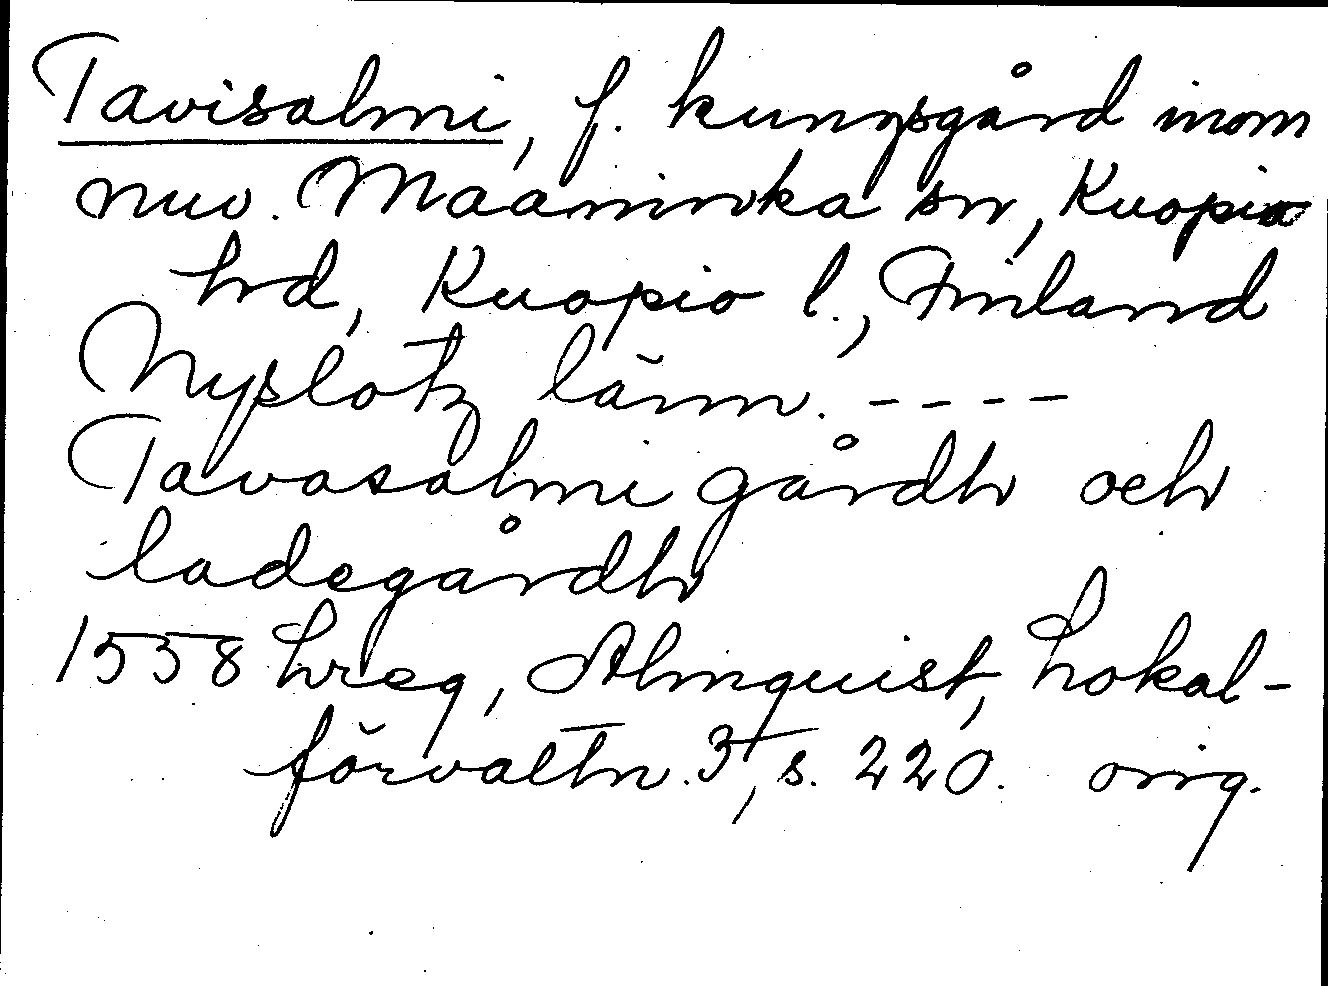 Tavisalmi, f. kungsgård inom
nuv. Maaninka sn, Kuopio
hd, Kuopio l., Finland
Nyslotz länn. ----
Tavasalmi gårdh och
ladegårdh
1558 hreg, Almquist, Lokal-
förvaltn. 3, s. 220. orig.